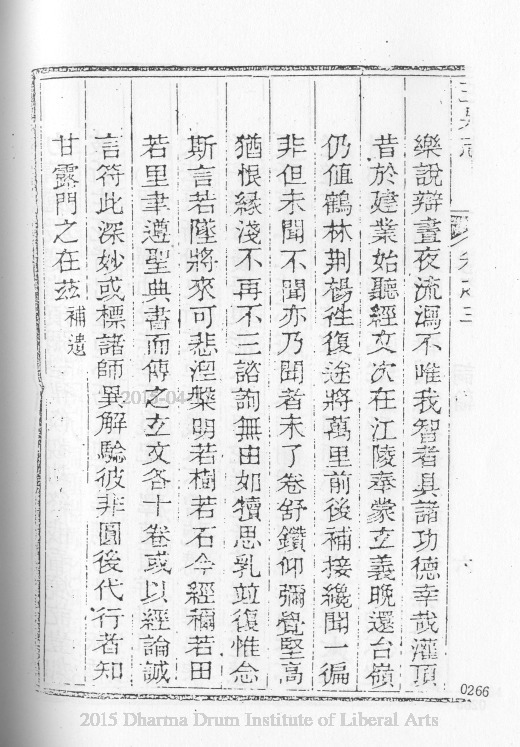 樂說辯晝夜流瀉不唯我智者具諸功德幸哉灌頂
昔於建業始聽經文次在江陵奉蒙玄義晚還台嶺
仍值鶴林荆楊徃復途將萬里前後補接纔聞一徧
非但未聞不聞亦乃聞者未了卷舒鑽仰彌覺堅高
猶恨緣淺不再不三諮詢無由如犢思乳竝復惟念
斯言若墜將來可悲涅槃明若樹若石今經稱若田
若里聿遵聖典書而傳之玄文各十卷或以經論誠
言符此深妙或標諸師異解騐彼非圓後代行者知
甘露門之在茲 補遺
0266
2015 Dharma Drum Institute of Liberal Arts